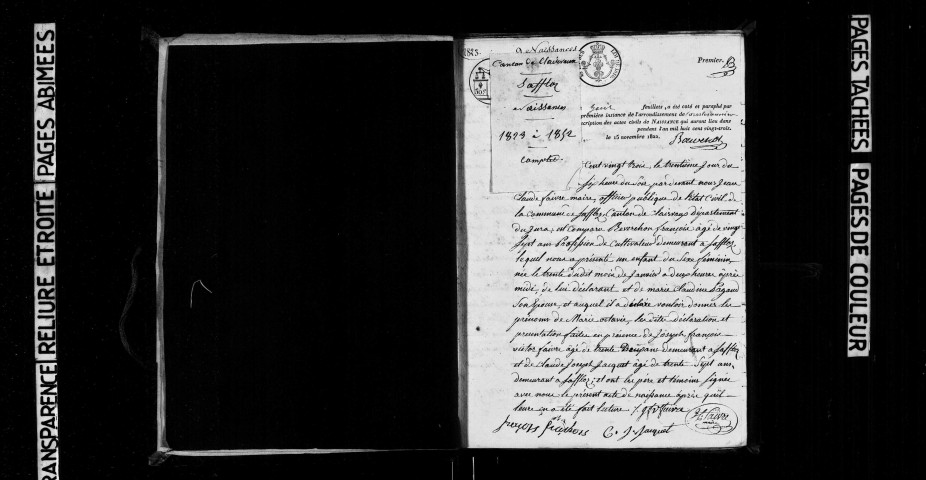 PAGES ABIMEES
RELIURE ETROITE
TRANSPARENCE
1823.
Naissances
Canton de Clairvaux
Saffloz
Naissances
1823 à 1852
Complet.
507
Premier.
feuillets, a été coté et paraphé par
première instance de l'arrondissement de
cription des actes civils de NAISSANCE qui auront lieu dans
pendant l'an mil huit cent vingt-trois.
le 15 novembre 1822.
Cent vingt trois, le trentième jour du
six heure du soir, par devant nous Jean
Claude faivre maire, officier publique de l'état Civil de
la commune de Saffloz, Canton de Clairvaux département
du Jura; est comparu françois âgé de vingt
sept ans Profession de Cultivateur demeurant à Saffloz
lequel nous a présenté un enfant du Sexe féminin,
née le trente dudit mois de Janvier a deux heures après
midi, de lui déclarant et de marie Claudine
Son Epouse, et auquel il a déclaré vouloir donner les
prénoms de Marie octavie, les dites déclaration et
présentation faites en présence de Joseph françois
victor faivre âgé de trente ans demeurant a Saffloz
et de Claude Joseph Jacquet âgé de trente Sept ans
demeurant a Saffloz; et ont les père et témoins signés
avec nous le présent acte de naissance après qu'il
leur en a été fait lecture
C. J. Jacquet
PAGES TACHÉES
PAGES DE COULEUR